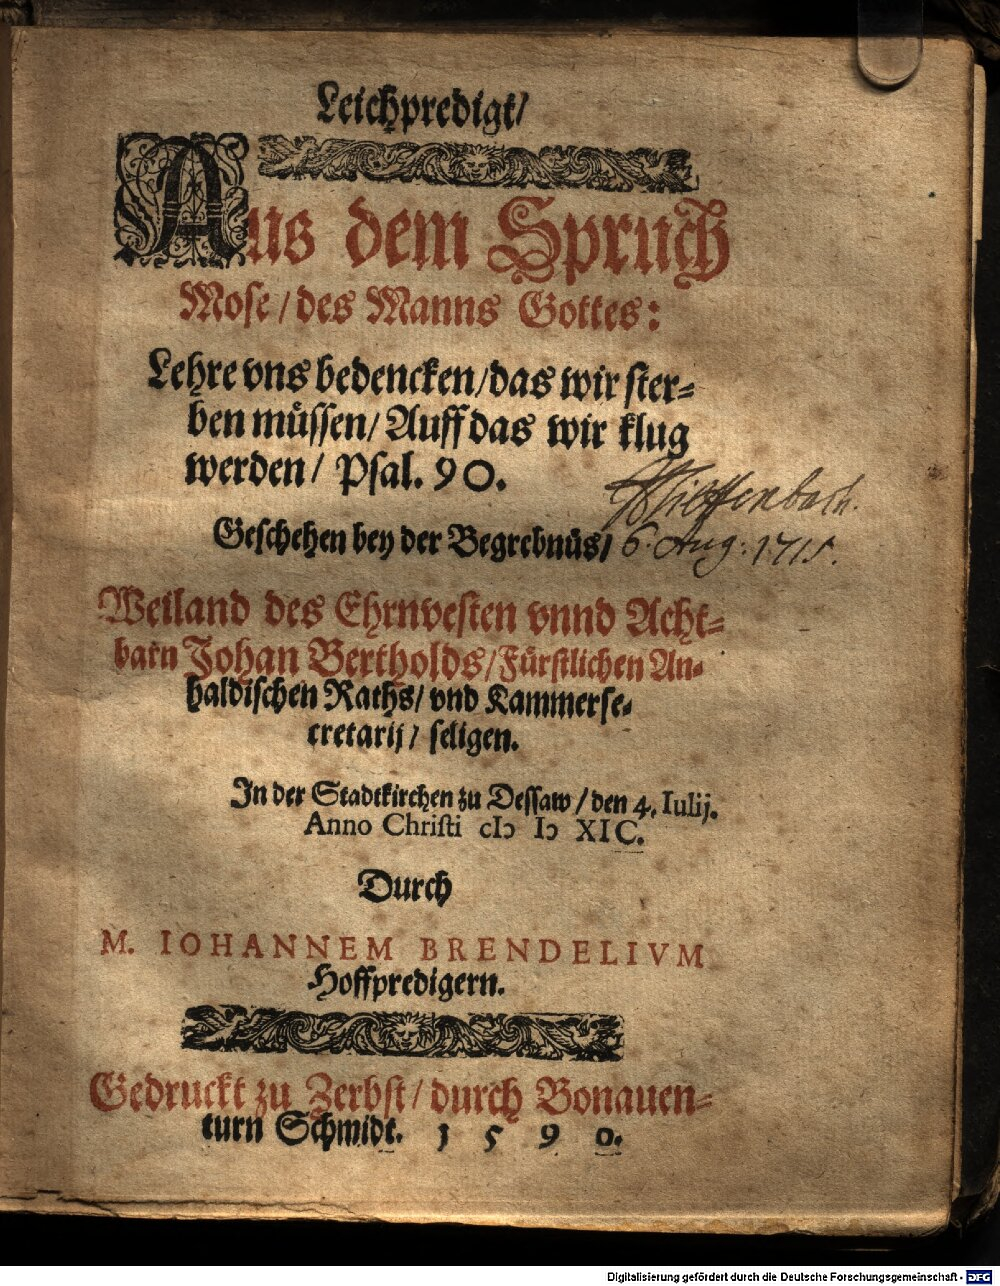 Leichpredigt/
Aus dem Spruch
Mose/des Manns Gottes:
Lehre vns bedencken/das wir ster⸗
ben müssen/Auff das wir klug
werden/ Psal. 90.
Geschehen bey der Begrebnüs/
6. Aug: 1715.
Weiland des Ehrnvesten vnnd Acht⸗
barn Johan Bertholds/Fürstlichen An⸗
haldischen Raths/ vnd Kammerse⸗
cretarij/ seligen.
In der Stadtkirchen zu Dessaw/den 4. Iulij.
Anno Christi cIↄ Iↄ XIC.
Durch
M. IOHANNEM BRENDELIVM
Hoffpredigern.
Gedruckt zu Zerbst/durch Bonauen⸗
turn Schmidt. 1590.
Digitalisierung gefördert durch die Deutsche Forschungsgemeinschaft - DFG